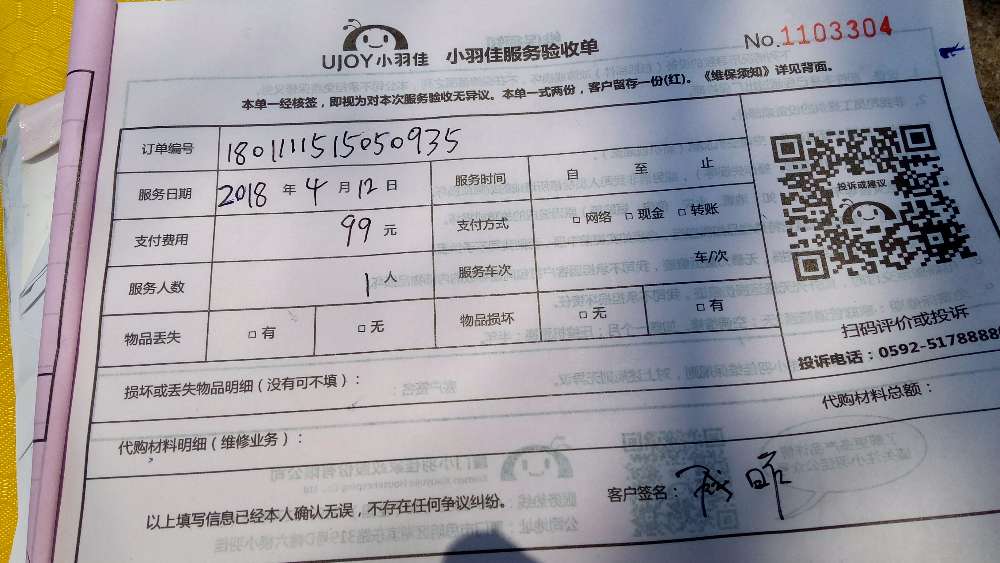 UJOY小羽佳 小羽佳服务验收单 No.1103304
本单一经核签，即视为对本次服务验收无异议。本单一式两份，客户留存一份(红)。《维保须知》详见背面。
订单编号 180111515050935
服务日期 2018 年 4 月 12 日 服务时间 自 至 止
投诉或建议
支付费用 99 元 支付方式 □ 网络 □ 现金 □ 转账
服务人数 1 人 服务车次 车/次
物品丢失 □ 有 □ 无 物品损坏 □ 无 □ 有
扫码评价或投诉
投诉电话：0592-5178888
损坏或丢失物品明细（没有可不填）：
代购材料明细（维修业务）： 代购材料总额：
以上填写信息已经本人确认无误，不存在任何争议纠纷。 客户签名：